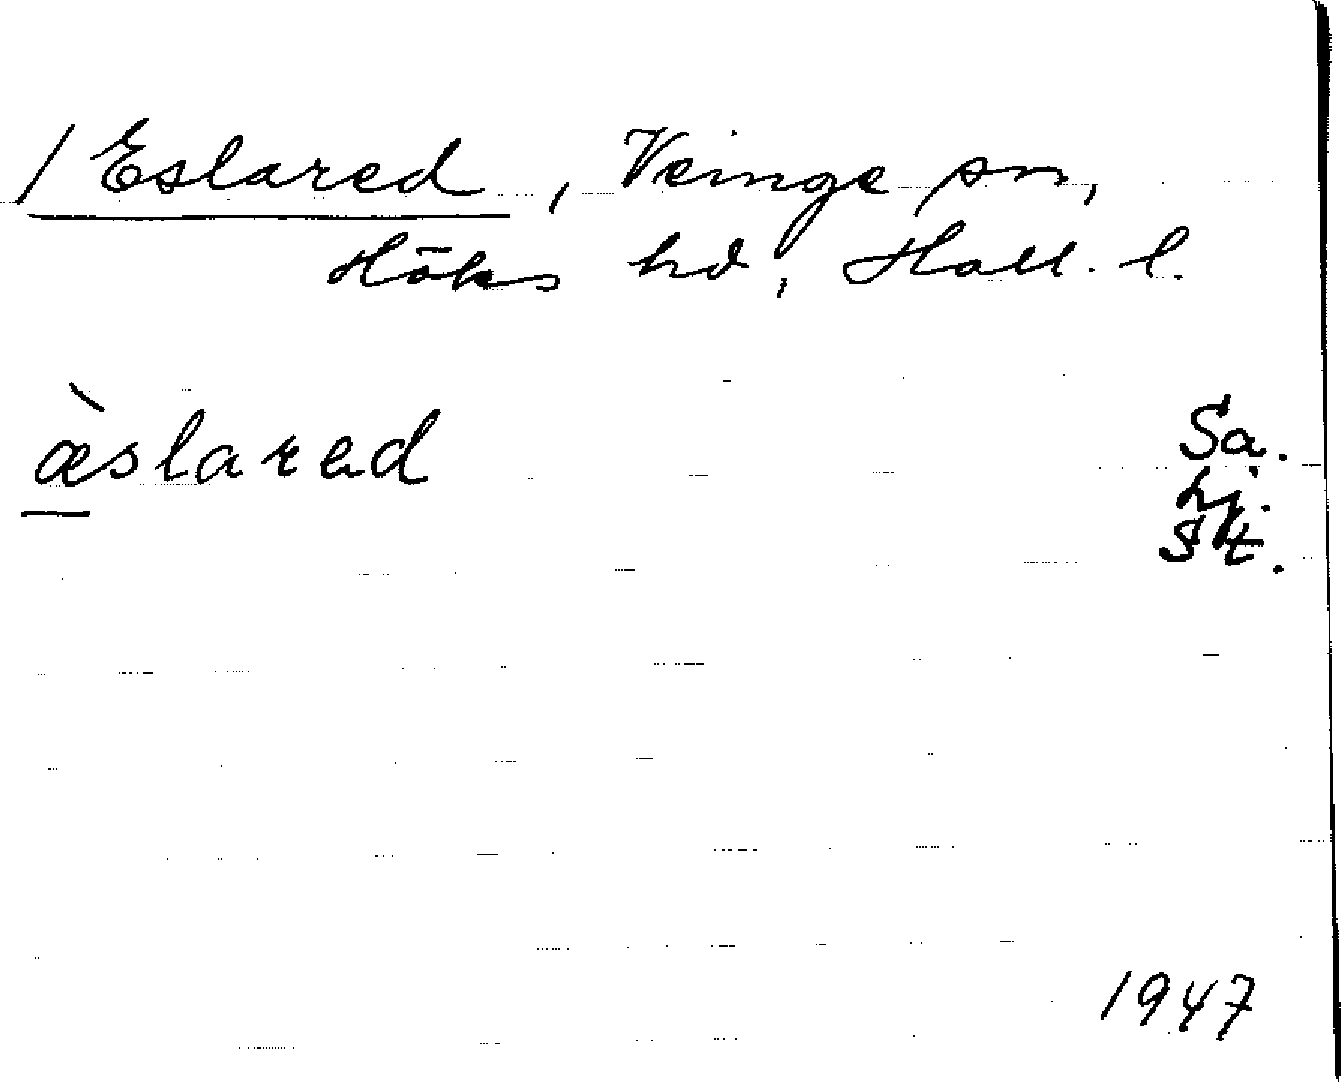 / Eslared, Veinge sn,
Höks hd, Hall. l.
æ̀slarad Sa.
hj.
St.
1947